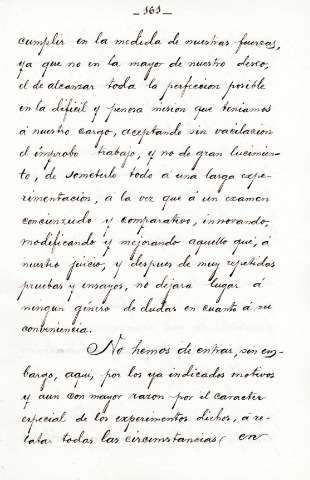 - 161 -
cumplir en la medida de nuestras fuerzas,
ya que no en la mayor de nuestro deseo,
el de alcanzar toda la perfeccion posible
en la dificil y penosa mision que teniamos
á nuestro cargo, aceptando sin vacilacion
el ímprobo trabajo, y no de gran lucimien-
to, de someterlo todo á una larga expe-
rimentación, á la vez que á un examen
concienzudo y comparativo, innovando,
modificando y mejorando aquello que, á
nuestro juicio, y despues de muy repetidas
pruebas y ensayos, no dejara lugar á
ningun género de dudas en cuanto á su
conveniencia.
No hemos de entrar, sin em-
bargo, aqui, por los ya indicados motivos
y aun con mayor razon por el caracter
especial de los experimentos dichos, á re-
latar todas las circunstancias en